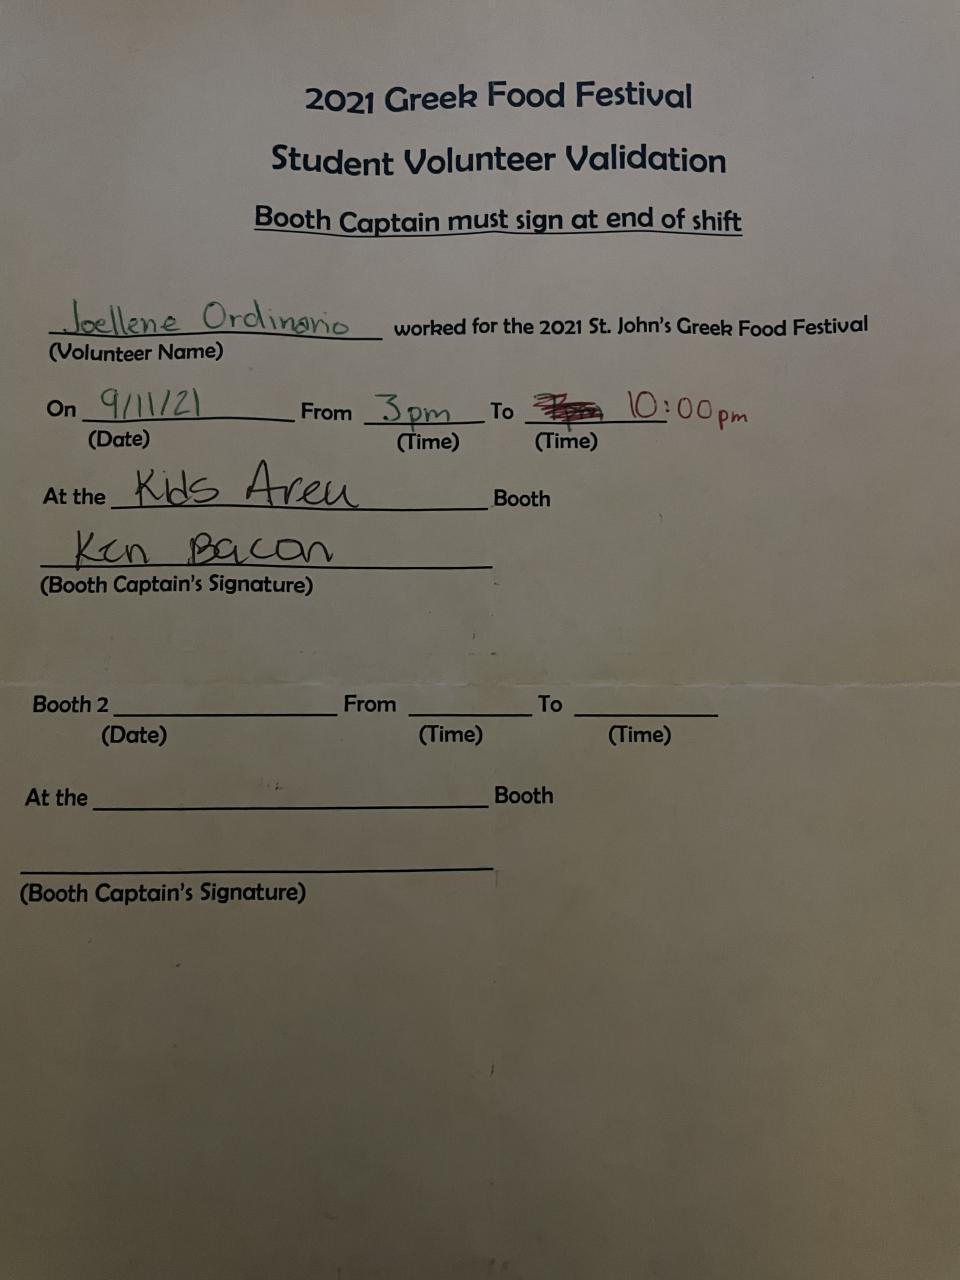 2021 Greek Food Festival
Student Volunteer Validation
Booth Captain must sign at end of shift
Joellene Ordinario worked for the 2021 St. John's Greek Food Festival
(Volunteer Name)
On 9/11/21 From 3pm To 10:00pm
(Date) (Time) (Time)
At the Kids Area Booth
Ken Bacon
(Booth Captain's Signature)
Booth 2 From To
(Date) (Time) (Time)
At the Booth
(Booth Captain's Signature)